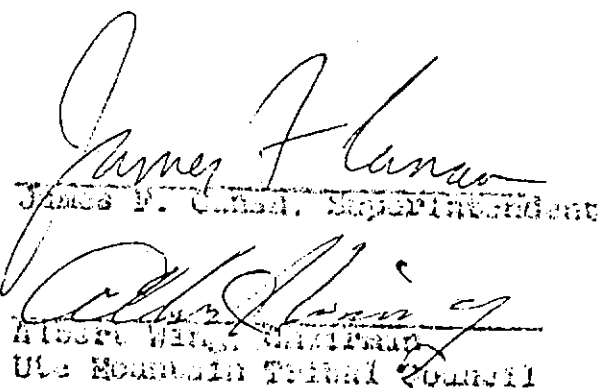 James F Canan
James F. Canan, Superintendent
Albert Wing
Albert Wing, Chairman
Ute Mountain Tribal Council